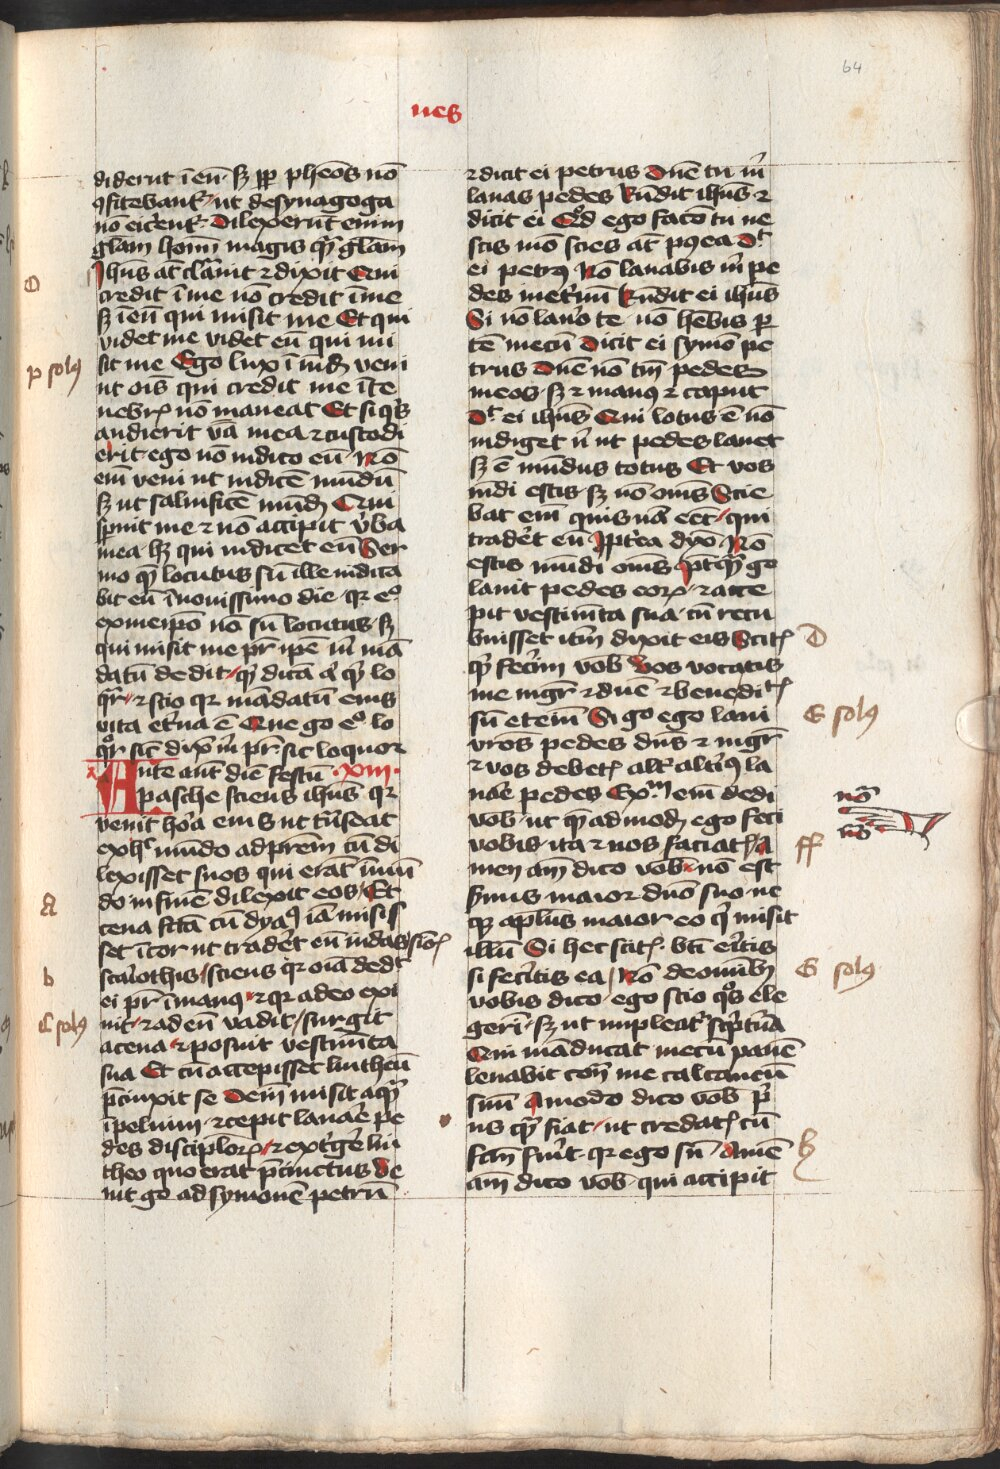 64
nes
diderūt ī eū · sꝫ ꝓp̄ pħeōs nō
ꝯfitebantʳ · ut de synagoga
nō eic̄entʳ · Dilexerūt enim
glām homīm magis qͣꝫ glām
Iħus at̄ clāmit ⁊ dyxit Qui
credit ī me nō credit ī me
sꝫ ī eū qui misit me Et qui
videt me videt eū qui mi
sit me Ego lux ī mūdꝫ veni
ut oīs qui credit me ī te
nebrꝝ nō maneat Et si qͥs
audierit vb̄a mea ⁊ custodi
erit · ego nō iudico eū · Nō
eīm veni ut iudicē mūdū
sꝫ ut saluificē mūdꝫ Qui
spnit me ⁊ nō accipit v̄ba
mea · hꝫ qui iudicet eū Ser
mo quē locutus sū ille iudica
bit eū ī nouissimo die · qꝛ eº
ex meipō nō sū locutus · sꝫ
qui misit me pr̄ ipē m̄ mā
datū dedit / qͥd dicā ⁊ qͥd lo
qͣr / ⁊ scio qꝛ mādatū eius
vita et̄na ē Que go eº lo
qͦr sic̄ dyx̄ m̄ pr̄ sic loquor
Ante aut̄ diē festū · XIII ·
pasche sciens iħus qꝛ
venit hōa eius ut t̄nseat
ex hͨ mūdo ad prem̄ cū di
lexisset suos qui erāt ī mū
do in finē dilexit eos / Et
cena fc̄ta cū dyaꝰ iā misis
set ī cor ut trad̄et eū iudas / siōꝭ
scariothis / sciens qꝛ oīa dedͭ
ei pr̄ ī manꝰ · ⁊ qꝛ a deo exi
uit / ⁊ ad eū vadit / surgit
a cena · ⁊ posuit vestim̄ta
sua Et cū accepisset lintheū
p̄cinxit se Dein̄ misit aqͣꝫ
ī peluim · ⁊ cepit lauāe pe
des disciploꝝ / ⁊ ext̄ḡe lin
theo quo erat p̄cinctus Ve
nit go ad symonē petrū
⁊ dicit ei petrus Dn̄e tu m̄
lauas pedes Rn̄dit iħus ⁊
dicit ei Qͦd ego facio tu ne
scis mō scies at̄ pꝰea Dͭ
ei petrꝰ Nō lauabis m̄ pe
des in et̄nū Rn̄dit ei iħus
Si nō lauo te nō hēbis ꝑ
tē mecū Dicit ei symō pe
trus Dn̄e nō tm̄ pedes
meos · sꝫ ⁊ manꝰ ⁊ caput
Dͭ ei iħus Qui lotus ē nō
indiget n̄ ut pedes lauet
sꝫ ē mūdus totus Et vos
mūdi estis · sꝫ nō oms̄ Scie
bat eīm quis nā eēt / qui
trad̄et eū ꝓpt̄ea dyx̄ Nō
estis mūdi oms̄ Pꝰtqͣꝫ go
lauit pedes eoꝝ / ⁊ acce
pit vestim̄ta sua · cū recu
buisset it̄m dyxit eis Scitꝭ
qͥd fec̄im vob̄ Vos vocatis
me mgr̄ ⁊ dn̄e ⁊ bene ditͭꝭ
sū etem̄ Si go ego laui
vr̄os pedes dn̄s ⁊ mgr̄
⁊ vos debetꝭ alt̄ alt̄iꝰ la
uāe pedes Exͫ eīm dedi
vob̄ · ut quē ad modꝫ ego feci
vobis / ita ⁊ uos faciatꝭ A
men am̄ dico vob̄ · nō est
s̄uus maior dn̄o suo ne
qꝫ apl̄us maior eo qͥ misit
illū Si hec scitꝭ · bt̄i eritis
si fec̄itis ea / Nō de omībꝫ
vobis dico / ego scio qͦs ele
gerī · sꝫ ut impleatʳ sc̄ptūa
Qui māducat mecū panē
leuabit cōn̄ me calcaneū
suū Amodo dico vob̄ p̄
us qͣꝫ fiat / ut credatꝭ cū
fc̄m fu̅it · qꝛ ego sū Amē
am̄ dico vob̄ · qui accipit
O
p solꝰ
A
b
C solꝰ
D
E solꝰ
nō
us
ff
G solꝰ
h